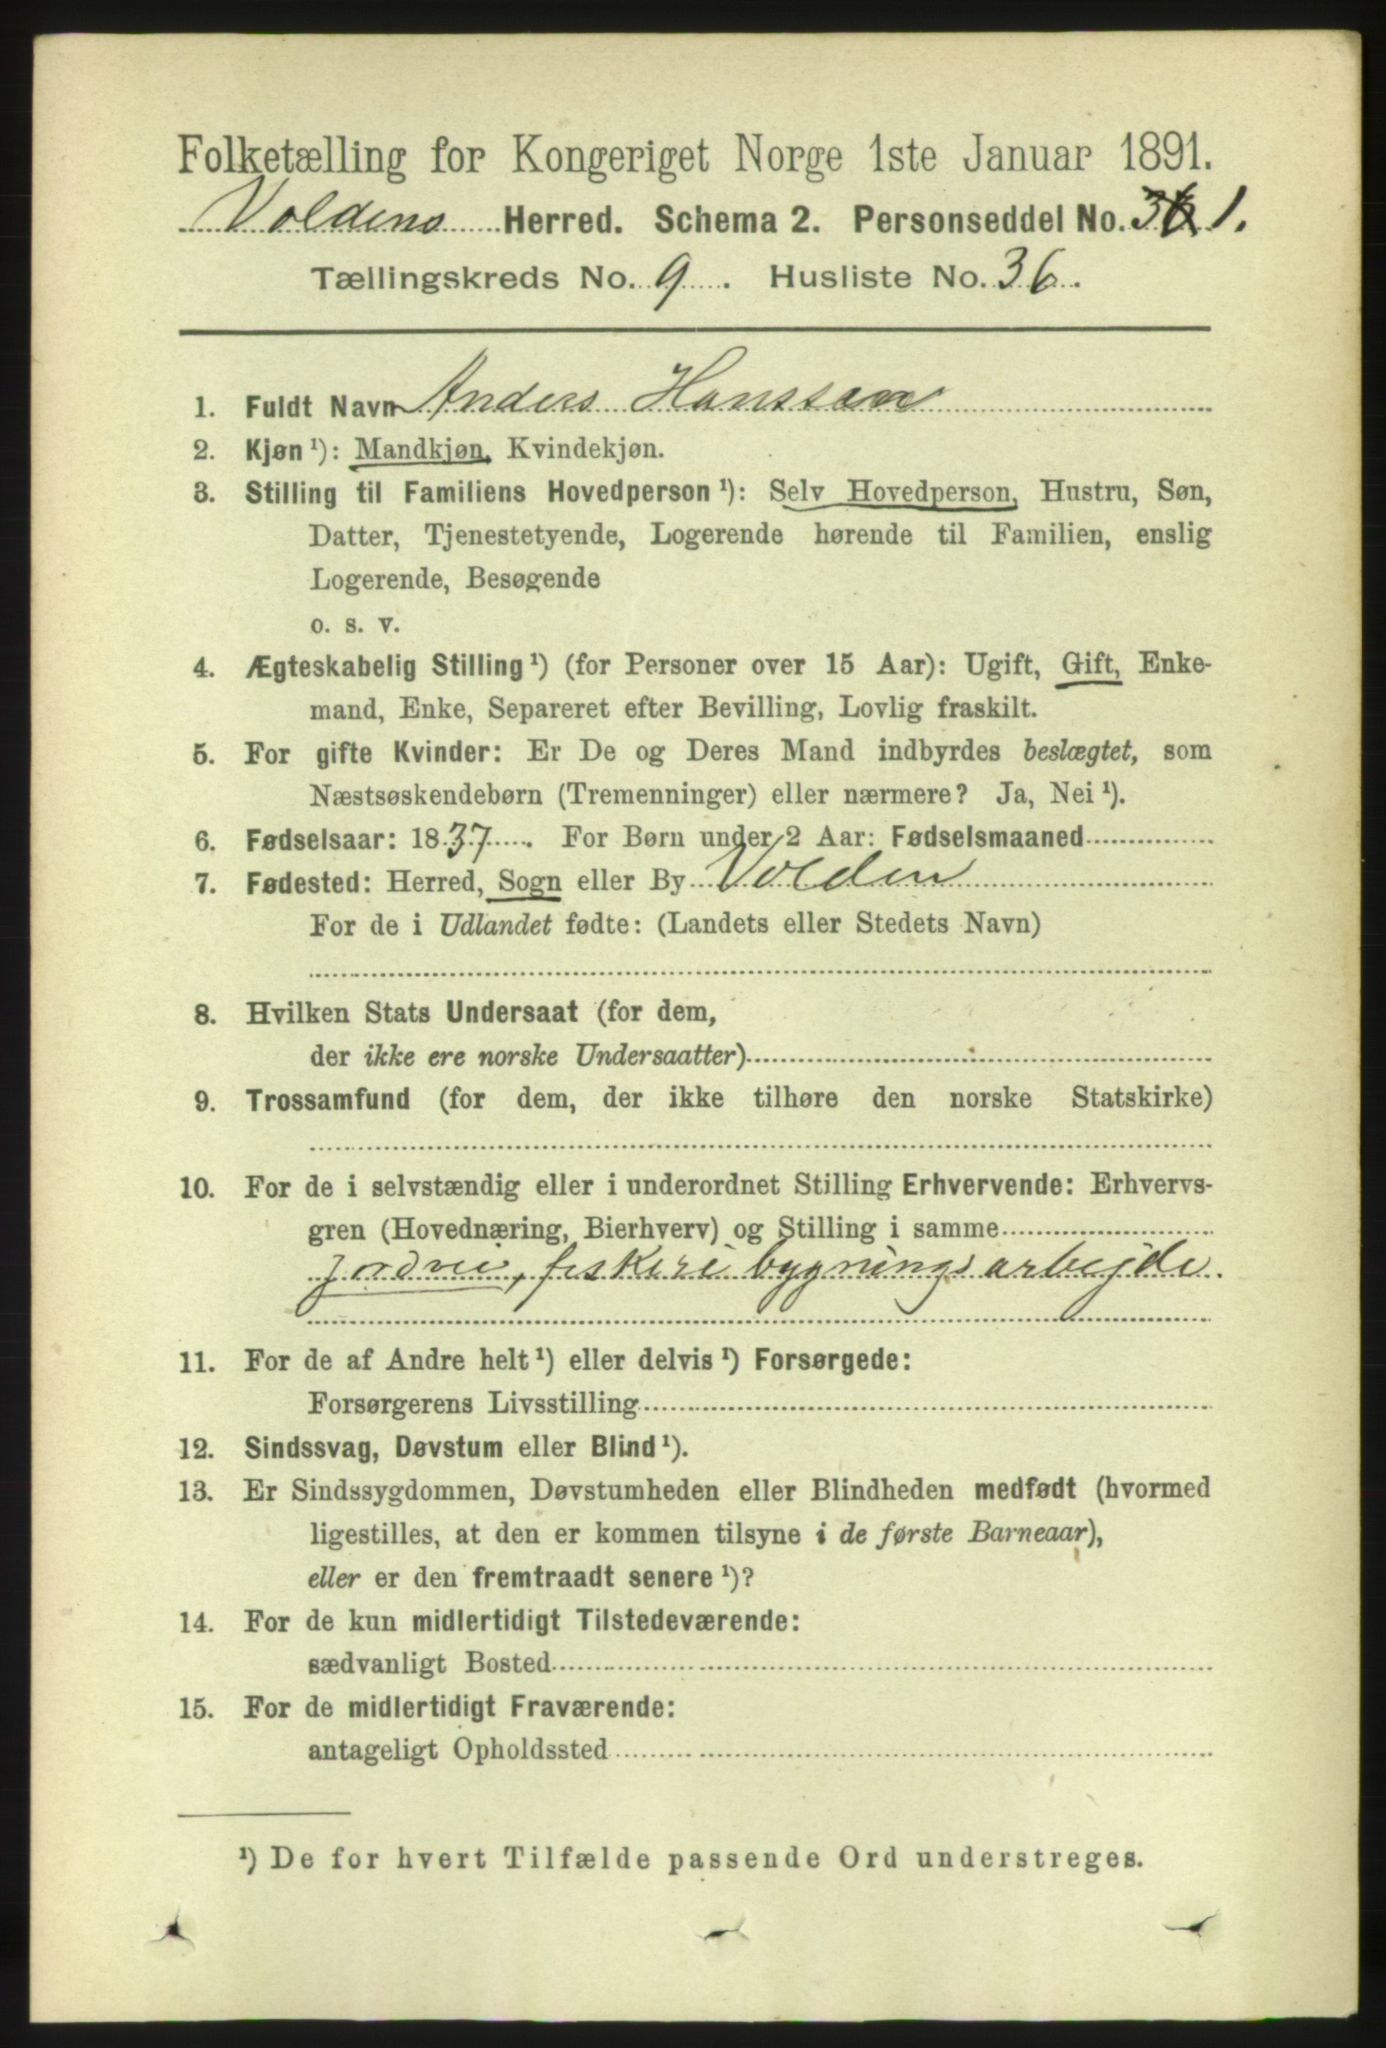 Folketælling for Kongeriget Norge 1ste Januar 1891.
Voldens Herred. Schema 2. Personseddel No. 1.
Tællingskreds No. 9. Husliste No. 36.
1. Fuldt Navn Anders Hanssen
2. Kjøn¹): Mandkjøn, Kvindekjøn.
3. Stilling til Familiens Hovedperson¹): Selv Hovedperson, Hustru, Søn,
Datter, Tjenestetyende, Logerende hørende til Familien, enslig
Logerende, Besøgende
o. s. v.
4. Ægteskabelig Stilling¹) (for Personer over 15 Aar): Ugift, Gift, Enke-
mand, Enke, Separeret efter Bevilling, Lovlig fraskilt.
5. For gifte Kvinder: Er De og Deres Mand indbyrdes beslægtet, som
Næstsøskendebørn (Tremenninger) eller nærmere? Ja, Nei¹).
6. Fødselsaar: 1837. For Børn under 2 Aar: Fødselsmaaned
7. Fødested: Herred, Sogn eller By Volden
For de i Udlandet fødte: (Landets eller Stedets Navn)
8. Hvilken Stats Undersaat (for dem,
der ikke ere norske Undersaatter)
9. Trossamfund (for dem, der ikke tilhøre den norske Statskirke)
10. For de i selvstændig eller i underordnet Stilling Erhvervende: Erhvervs-
gren (Hovednæring, Bierhverv) og Stilling i samme
Jordvei, fiskeri bygningsarbejde.
11. For de af Andre helt¹) eller delvis¹) Forsørgede:
Forsørgerens Livsstilling
12. Sindssvag, Døvstum eller Blind¹).
13. Er Sindssygdommen, Døvstumheden eller Blindheden medfødt (hvormed
ligestilles, at den er kommen tilsyne i de første Barneaar),
eller er den fremtraadt senere¹)?
14. For de kun midlertidigt Tilstedeværende:
sædvanligt Bosted
15. For de midlertidigt Fraværende:
antageligt Opholdssted
¹) De for hvert Tilfælde passende Ord understreges.